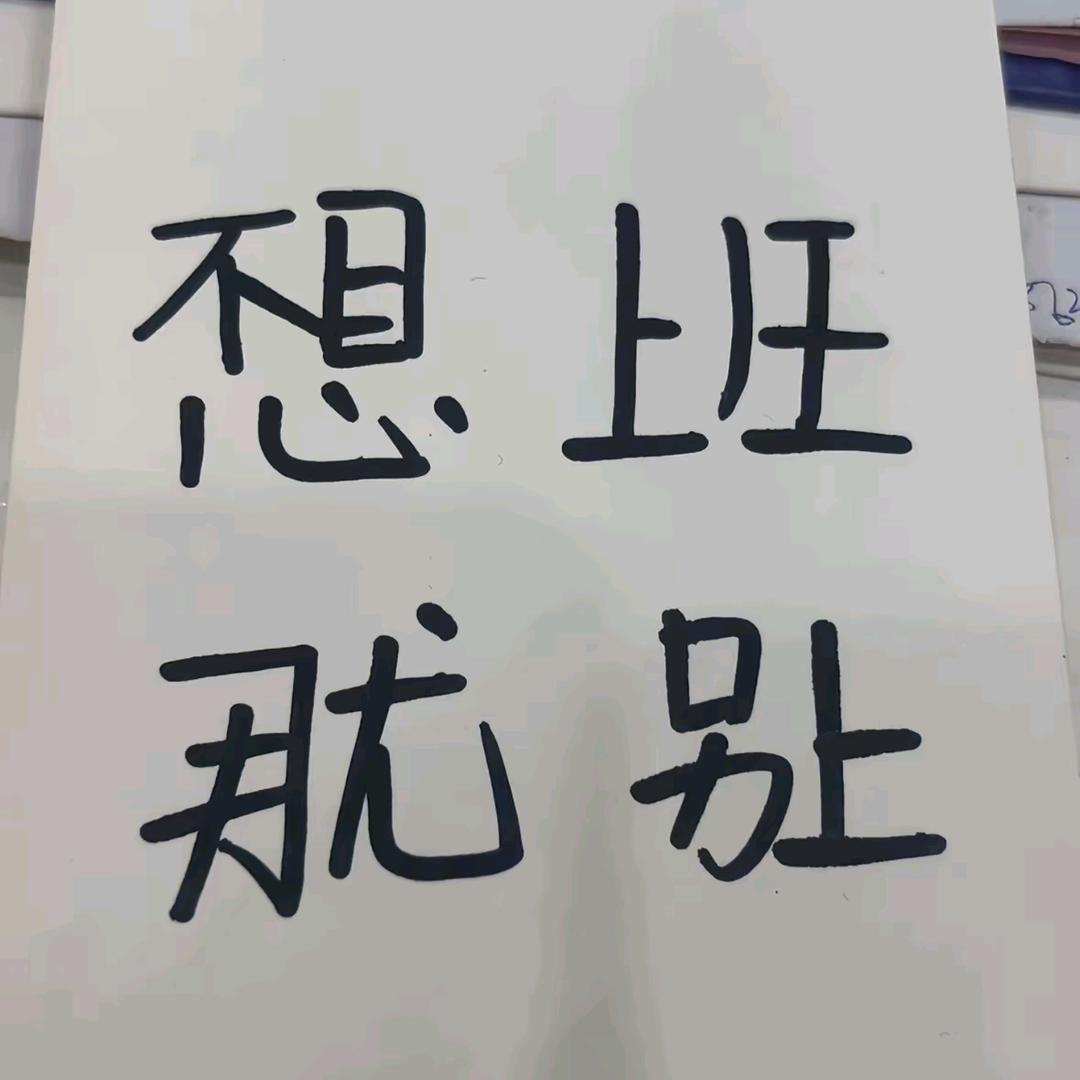 想上班
就别